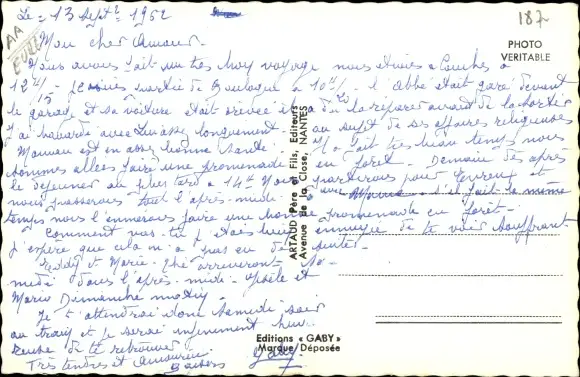 Le 13 Septbre 1962
187
AA
EURE
Mon cher Amour.
PHOTO
VERITABLE
Nous avons fait un très bon voyage nous étions à Conches à
12 H 15 je suis sortie de à 10 H. L'abbé était garé devant
le garage et sa voiture était il a du la réparer avant de
J'ai bavardé avec lui assez longuement au sujet de ses affaires religieuses
Maman est en assez bonne santé. Il a fait très beau temps nous
sommes allées faire une promenade en forêt. Demain de après
le déjeuner au plus tard à 14 H nous partirons pour Evreux et
nous passerons tout l'après-midi avec Mamie s'il fait le même
temps nous l'emmerons faire une bonne promenade en forêt.
Comment vas-tu j'étais bien ennuyée de te voir souffrant
J'espère que cela n'a pas eu de suites.
Teddy et Marie-Thé arriveront Sa-
medi dans l'après-midi Gisèle et
Mario Dimanche matin.
Je t'attendrai donc Samedi soir
au train et je serai infiniment heu-
reuse de te retrouver.
Très tendres et amoureux
Baisers
ARTAUD Père et Fils, Editeurs
Avenue de la Close, NANTES
Editions « GABY »
Marque Déposée